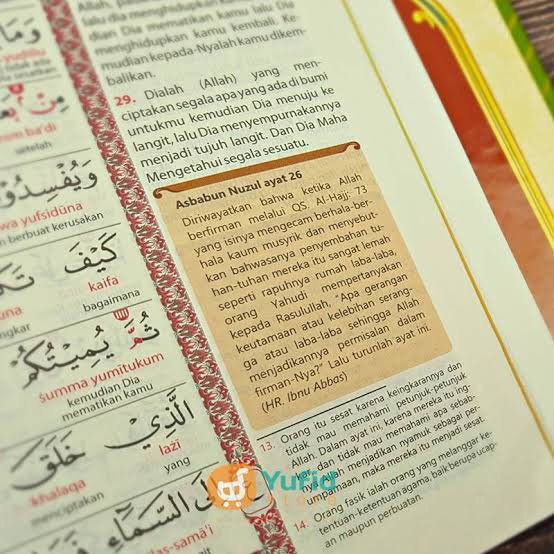 Allah,
lalu dia menghidupkan kamu, lalu Dia
dian Dia mematikan kamu lalu Dia
menghidupkan kamu kembali. Ke-
mudian kepada-Nyalah kamu dikem-
balikan.
29. Dialah (Allah) yang men-
ciptakan segala apa yang ada di bumi
untukmu kemudian Dia menuju ke
langit, lalu Dia menyempurnakannya
menjadi tujuh langit. Dan Dia Maha
Mengetahui segala sesuatu.
Asbabun Nuzul ayat 26
Diriwayatkan bahwa ketika Allah
berfirman melalui QS. Al-Hajj: 73
yang isinya mengecam berhala-ber-
hala kaum musyrik dan menyebut-
kan bahwasanya penyembahan tu-
han-tuhan mereka itu sangat lemah
seperti rapuhnya rumah laba-laba,
orang Yahudi mempertanyakan
kepada Rasulullah, "Apa gerangan
keutamaan atau kelebihan serang-
ga atau laba-laba sehingga Allah
menjadikannya permisalan dalam
firman-Nya?" Lalu turunlah ayat ini.
(HR. Ibnu Abbas)
13. Orang itu sesat karena keingkarannya dan
tidak mau memahami petunjuk-petunjuk
Allah. Dalam ayat ini, karena mereka itu ing-
kar dan tidak mau memahami apa sebab-
nya Allah menjadikan nyamuk sebagai per-
umpamaan, maka mereka itu menjadi sesat.
14. Orang fasik ialah orang yang melanggar ke-
tentuan-ketentuan agama, baik berupa ucap-
an maupun perbuatan.
وَمَا
مِنْ بَعْ
ba'di
setelah
وَيُفْسِدُو
wa yufsidūna
berbuat kerusakan
كَيْفَ
kaifa
bagaimana
ثُمَّ يُمِيْتُكُمْ
ṡumma yumītukum
kemudian Dia
mematikan kamu
الَّذِيْ خَلَقَ
lażī
yang
khalaqa
menciptakan
السَّمَاۤءِ
as-samā'i
Yufid
STORE